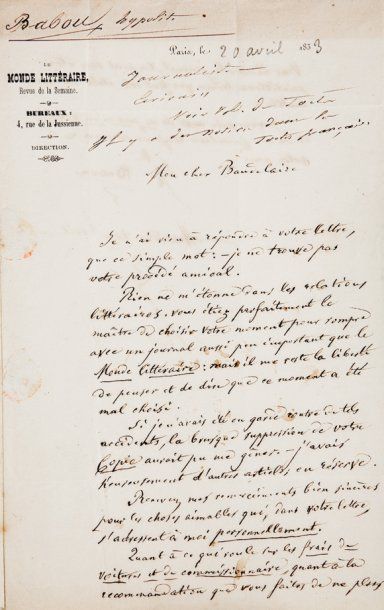 Babou, hypolite
LE
MONDE LITTÉRAIRE,
Revue de la Semaine.
BUREAUX :
4, rue de la Jussienne.
DIRECTION.
Paris, le 20 avril 1853
Journaliste
Ecrivain
Voir Vol. de
Il y a des notices dans le
français.
Mon cher Baudelaire
Je n'ai rien à répondre à votre lettre,
que ce simple mot : - je ne trouve pas
votre procédé amical.
Rien ne m'étonne dans les relations
littéraires. vous étiez parfaitement le
maître de choisir votre moment pour rompre
avec un journal aussi peu important que le
Monde littéraire : mais il me reste la liberté
de penser et de dire que ce moment a été
mal choisi.
Si je n'avais été en garde contre de tels
accidents, la brusque suppression de votre
Copie aurait pu me gêner. - j'avais
heureusement d'autres articles en réserve.
Recevez mes remerciments bien sincères
pour les choses aimables qui, dans votre lettre,
s'adressent à moi personnellement.
Quant à ce qui roule sur les frais de
voitures et de commissionnaire, quant à la
recommandation que vous faites de ne plus